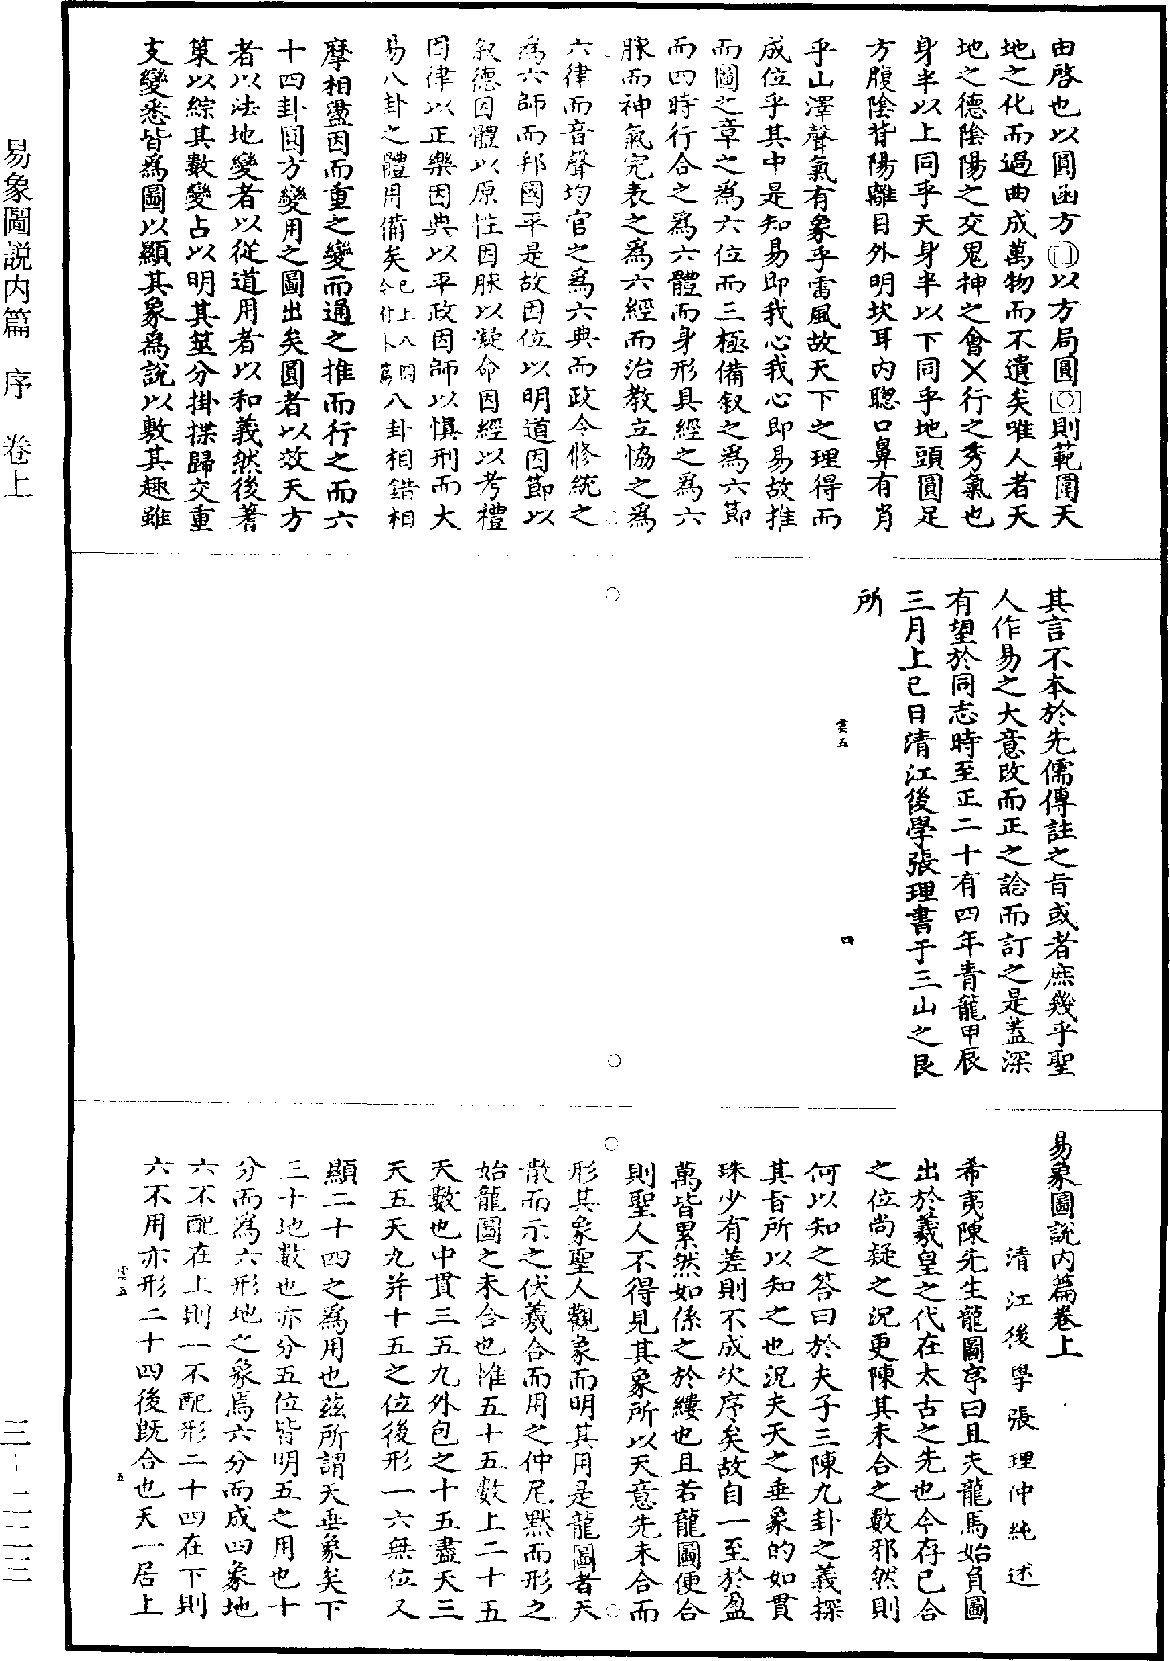 由啓也以圓函方以方局圓則範圍天
地之化而過曲成萬物而不遺矣唯人者天
地之德陰陽之交鬼神之會㐅行之秀氣也
身半以上同乎天身半以下同乎地頭圓足
方腹陰背陽離目外明坎耳內聰口鼻有肖
乎山澤聲氣有象乎雷風故天下之理得而
成位乎其中是知易即我心我心即易故推
而圖之章之爲六位而三極備叙之爲六節
而四時行合之爲六體而身形具經之爲六
脉而神氣完表之爲六經而治教立協之爲
六律而音聲均官之爲六典而政令修統之
爲六師而邦國平是故因位以明道因節以
叙德因體以原性因脉以凝命因經以考禮
因律以正樂因典以平政因師以慎刑而大
易八卦之體用備矣已上八圖八卦相錯相
摩相盪因而重之變而通之推而行之而六
十四卦圓方變用之圖出矣圓者以效天方
者以法地變者以從道用者以和義然後蓍
策以綜其數變占以明其筮分掛揲歸交重
支變悉皆爲圖以顯其象爲說以敷其趣雖
其言不本於先儒傳註之旨或者庶幾乎聖
人作易之大意改而正之諗而訂之是蓋深
有望於同志時至正二十有四年青龍甲辰
三月上巳日清江後學張理書于三山之艮
所
雲五
四
易象圖說內篇卷上
清江後學張理仲純述
希夷陳先生龍圖序曰且夫龍馬始負圖
出於羲皇之代在太古之先也今存已合
之位尚疑之況更陳其未合之數邪然則
何以知之答曰於夫子三陳九卦之義探
其旨所以知之也況夫天之垂象的如貫
珠少有差則不成次序矣故自一至於盈
萬皆累然如係之於縷也且若龍圖便合
則聖人不得見其象所以天意先未合而
形其象聖人觀象而明其用是龍圖者天
散而示之伏羲合而用之仲尼默而形之
始龍圖之未合也惟五十五數上二十五
天數也中貫三五九外包之十五盡天三
天五天九并十五之位後形一六無位又
顯二十四之爲用也茲所謂天垂象矣下
三十地數也亦分五位皆明五之用也十
分而爲六形地之象焉六分而成四象地
六不配在上則一不配形二十四在下則
六不用亦形二十四後旣合也天一居上
雲五
五
易象圖説内篇 序 卷上
三-二二三